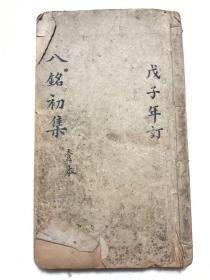 戊子年訂
八銘初集